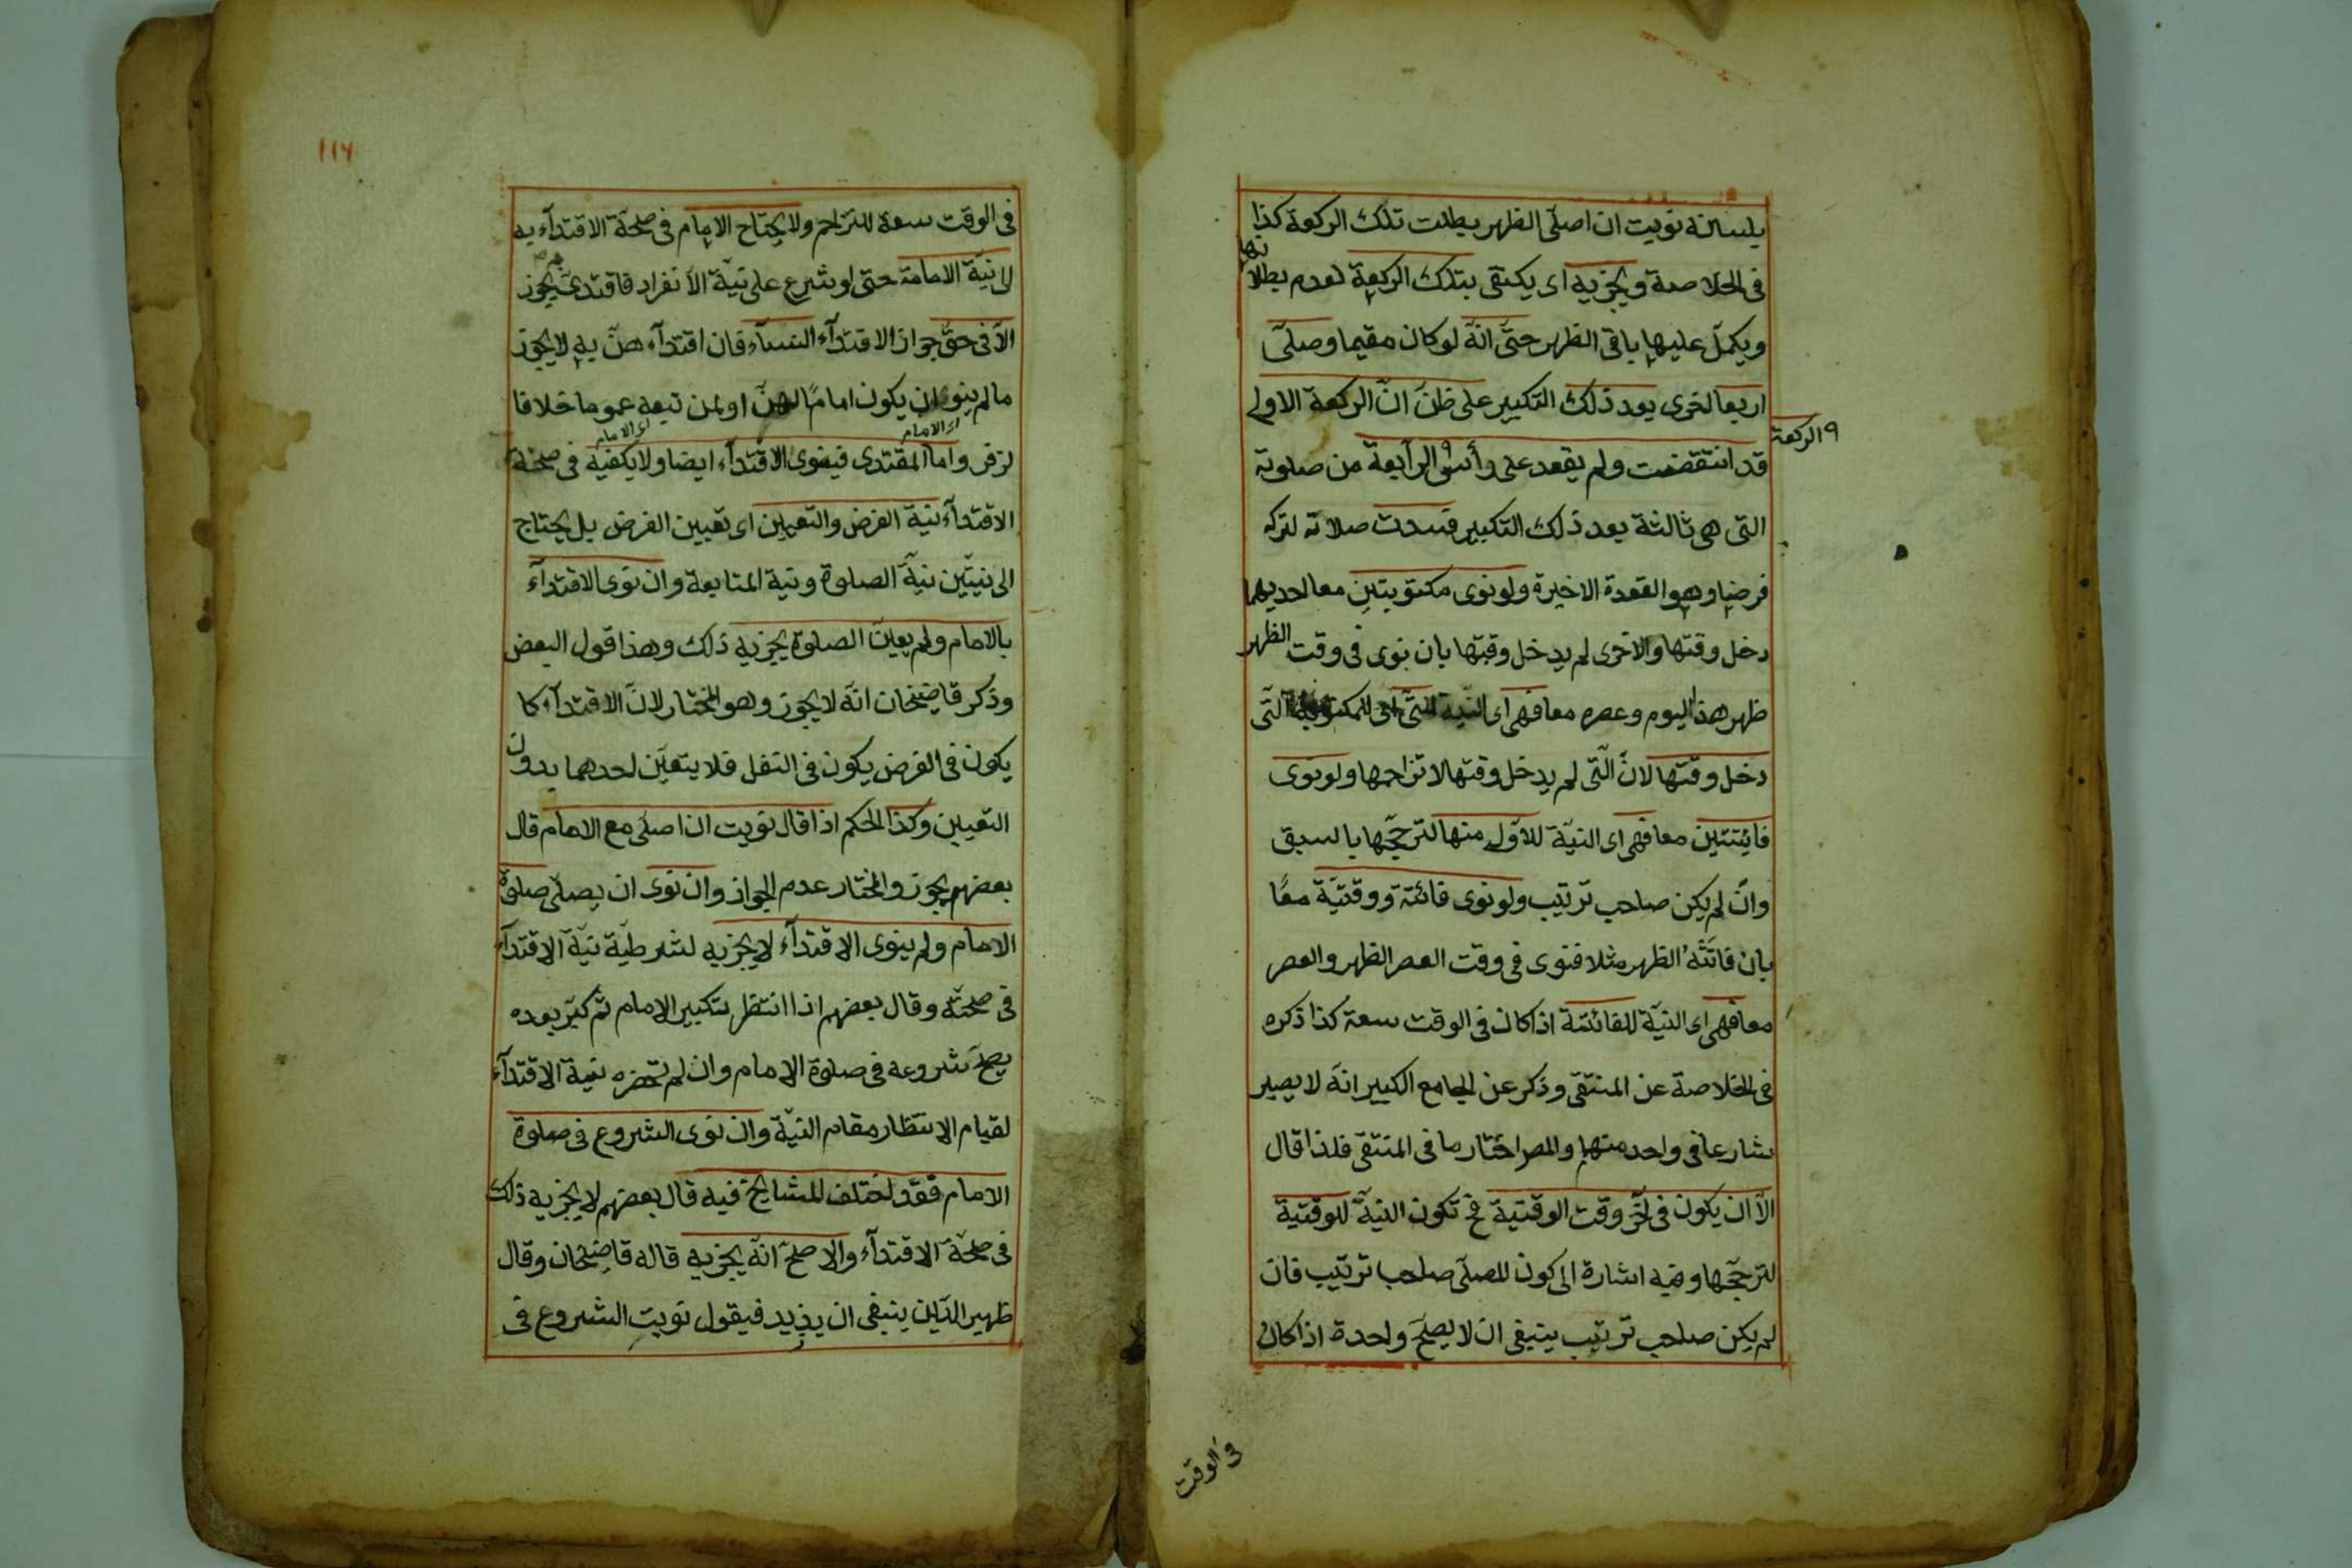 بلسانه نويت ان اصلى الظهر بطلت تلك الركعة كذا
فى الخلاصة ويجزيه اى يكتفى بتلك الركعة لعدم بطلانها
ويكمل عليها باقى الظهر حتى انّه لو كان مقيما وصلّى
اربعا اخرى بعد ذلك التكبير على ظنّ انّ الركعة الاولى
قد انتقضت ولم يقعد على رأس الرابعة من صلوته
الركعة
التى هى ثالثة بعد ذلك التكبير فسدت صلاته لتركه
فرضا وهو القعدة الاخيرة ولو نوى مكتوبتين معا احديهما
دخل وقتها والاخرى لم يدخل وقتها بان نوى فى وقت الظهر
ظهر هذا اليوم وعصره معا فهى اى النية للمكتوبة التّى
دخل وقتها لانّ الّتى لم يدخل وقتها لا تزاحمها ولو نوى
فائتتين معا فهى اى النيّة للاولى منها لترجّحها بالسبق
وان لم يكن صاحب ترتيب ولو نوى فائتة ووقتيّة معًا
بان فاتَتْهُ الظهر مثلا فنوى فى وقت العصر الظهر والعصر
معا فهى اى النيّة للفائتة اذا كان فى الوقت سعة كذا ذكره
فى الخلاصة عن المنتقى وذكر عن الجامع الكبير انّه لا يصير
شارعا فى واحد منهما والمص اختار ما فى المنتقى فلذا قال
الاّ ان يكون فى آخر وقت الوقتية فح تكون النيّة للوقتية
لترجّحها وفيه اشارة الى كون المصلّى صاحب ترتيب فان
لم يكن صاحب ترتيب ينبغى ان لا يصحّ واحدة اذا كان
فى الوقت
١١٦
فى الوقت سعة للتزاحم ولا يحتاج الامام فى صحّة الاقتداء به
الى نيّة الامامة حتى لو شرع على نيّة الانفراد فاقتدى يجوز
الاّ فى حقّ جواز الاقتداء النساء فان اقتداء هنّ به لا يجوز
ما لم ينو ان يكون امامًا لهنّ او لمن تبعه عموما خلافا
اى الامام
اى الامام
لزفر واما المقتدى فينوى الاقتداء ايضا ولا يكفيه فى صحّة
الاقتداء نية الفرض والتعيين اى تعيين الفرض بل يحتاج
الى نيتين نيّة الصلوة ونية المتابعة وان نوى الاقتداء
بالامام ولم يعين الصلوة يجزيه ذلك وهذا قول البعض
وذكر قاضيخان انّه لا يجوز وهو المختار لانّ الاقتداء كما
يكون فى الفرض يكون فى النفل فلا يتعيّن احدهما بدون
التعيين وكذا الحكم اذا قال نويت ان اصلّى مع الامام قال
بعضهم يجوز والمختار عدم الجواز وان نوى ان يصلّى صلوة
الامام ولم ينوى الاقتداء لا يجزيه لشرطيّة نيّة الاقتداء
فى صحّته وقال بعضهم اذا انتظر تكبير الامام ثم كبّر بعده
يصحّ شروعه فى صلوة الامام وان لم تحضره نية الاقتداء
لقيام الانتظار مقام النيّة وان نوى الشروع فى صلوة
الامام فقد اختلف المشايخ فيه قال بعضهم لا يجزيه ذلك
فى صحّة الاقتداء والاصحّ انّه يجزيه قاله قاضيخان وقال
ظهير الدّين ينبغى ان يزيد فيقول نويت الشروع فى